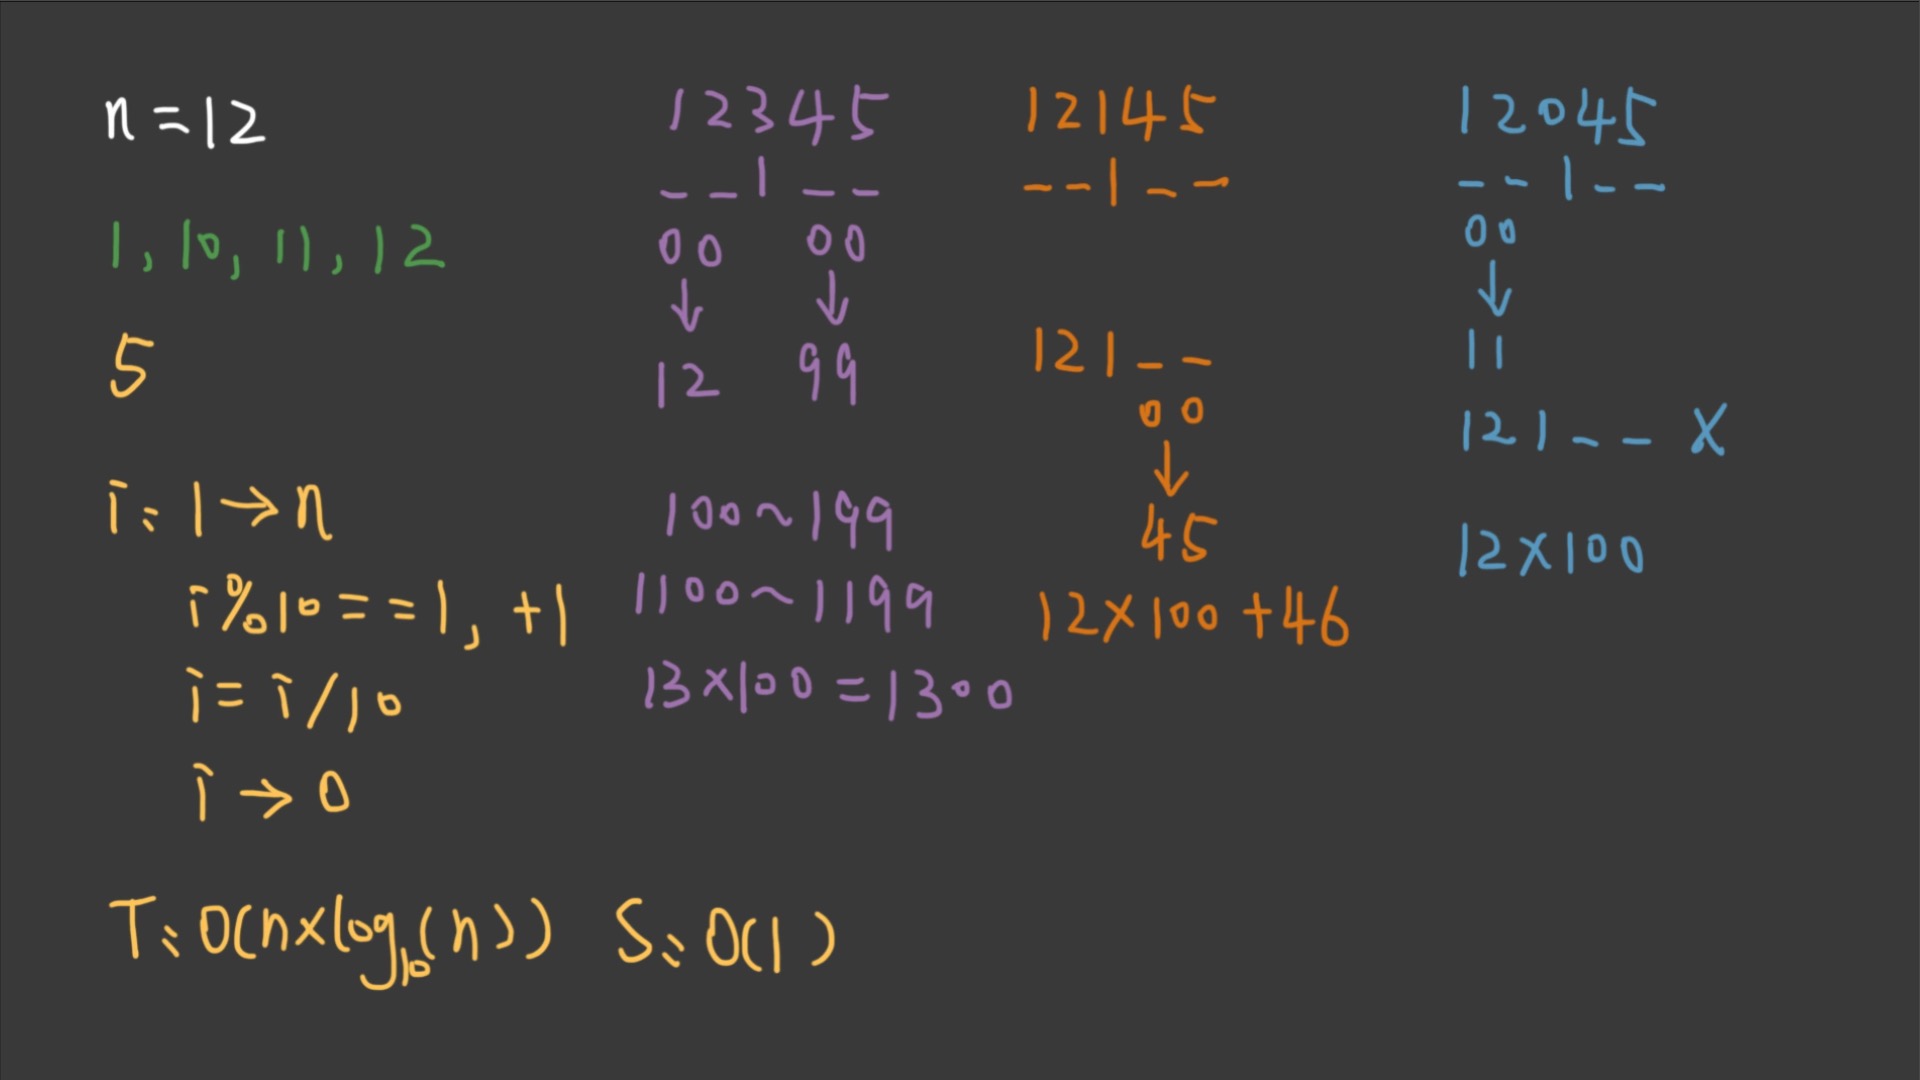 n=12
1, 10, 11, 12
5
i: 1→n
i%10==1, +1
i=i/10
i→0
T: O(n×log₁₀(n)) S: O(1)
12345
__1__
00 00
↓ ↓
12 99
100~199
1100~1199
13×100=1300
12145
__1__
121__
00
↓
45
12×100+46
12045
__1__
00
↓
11
121__ X
12×100